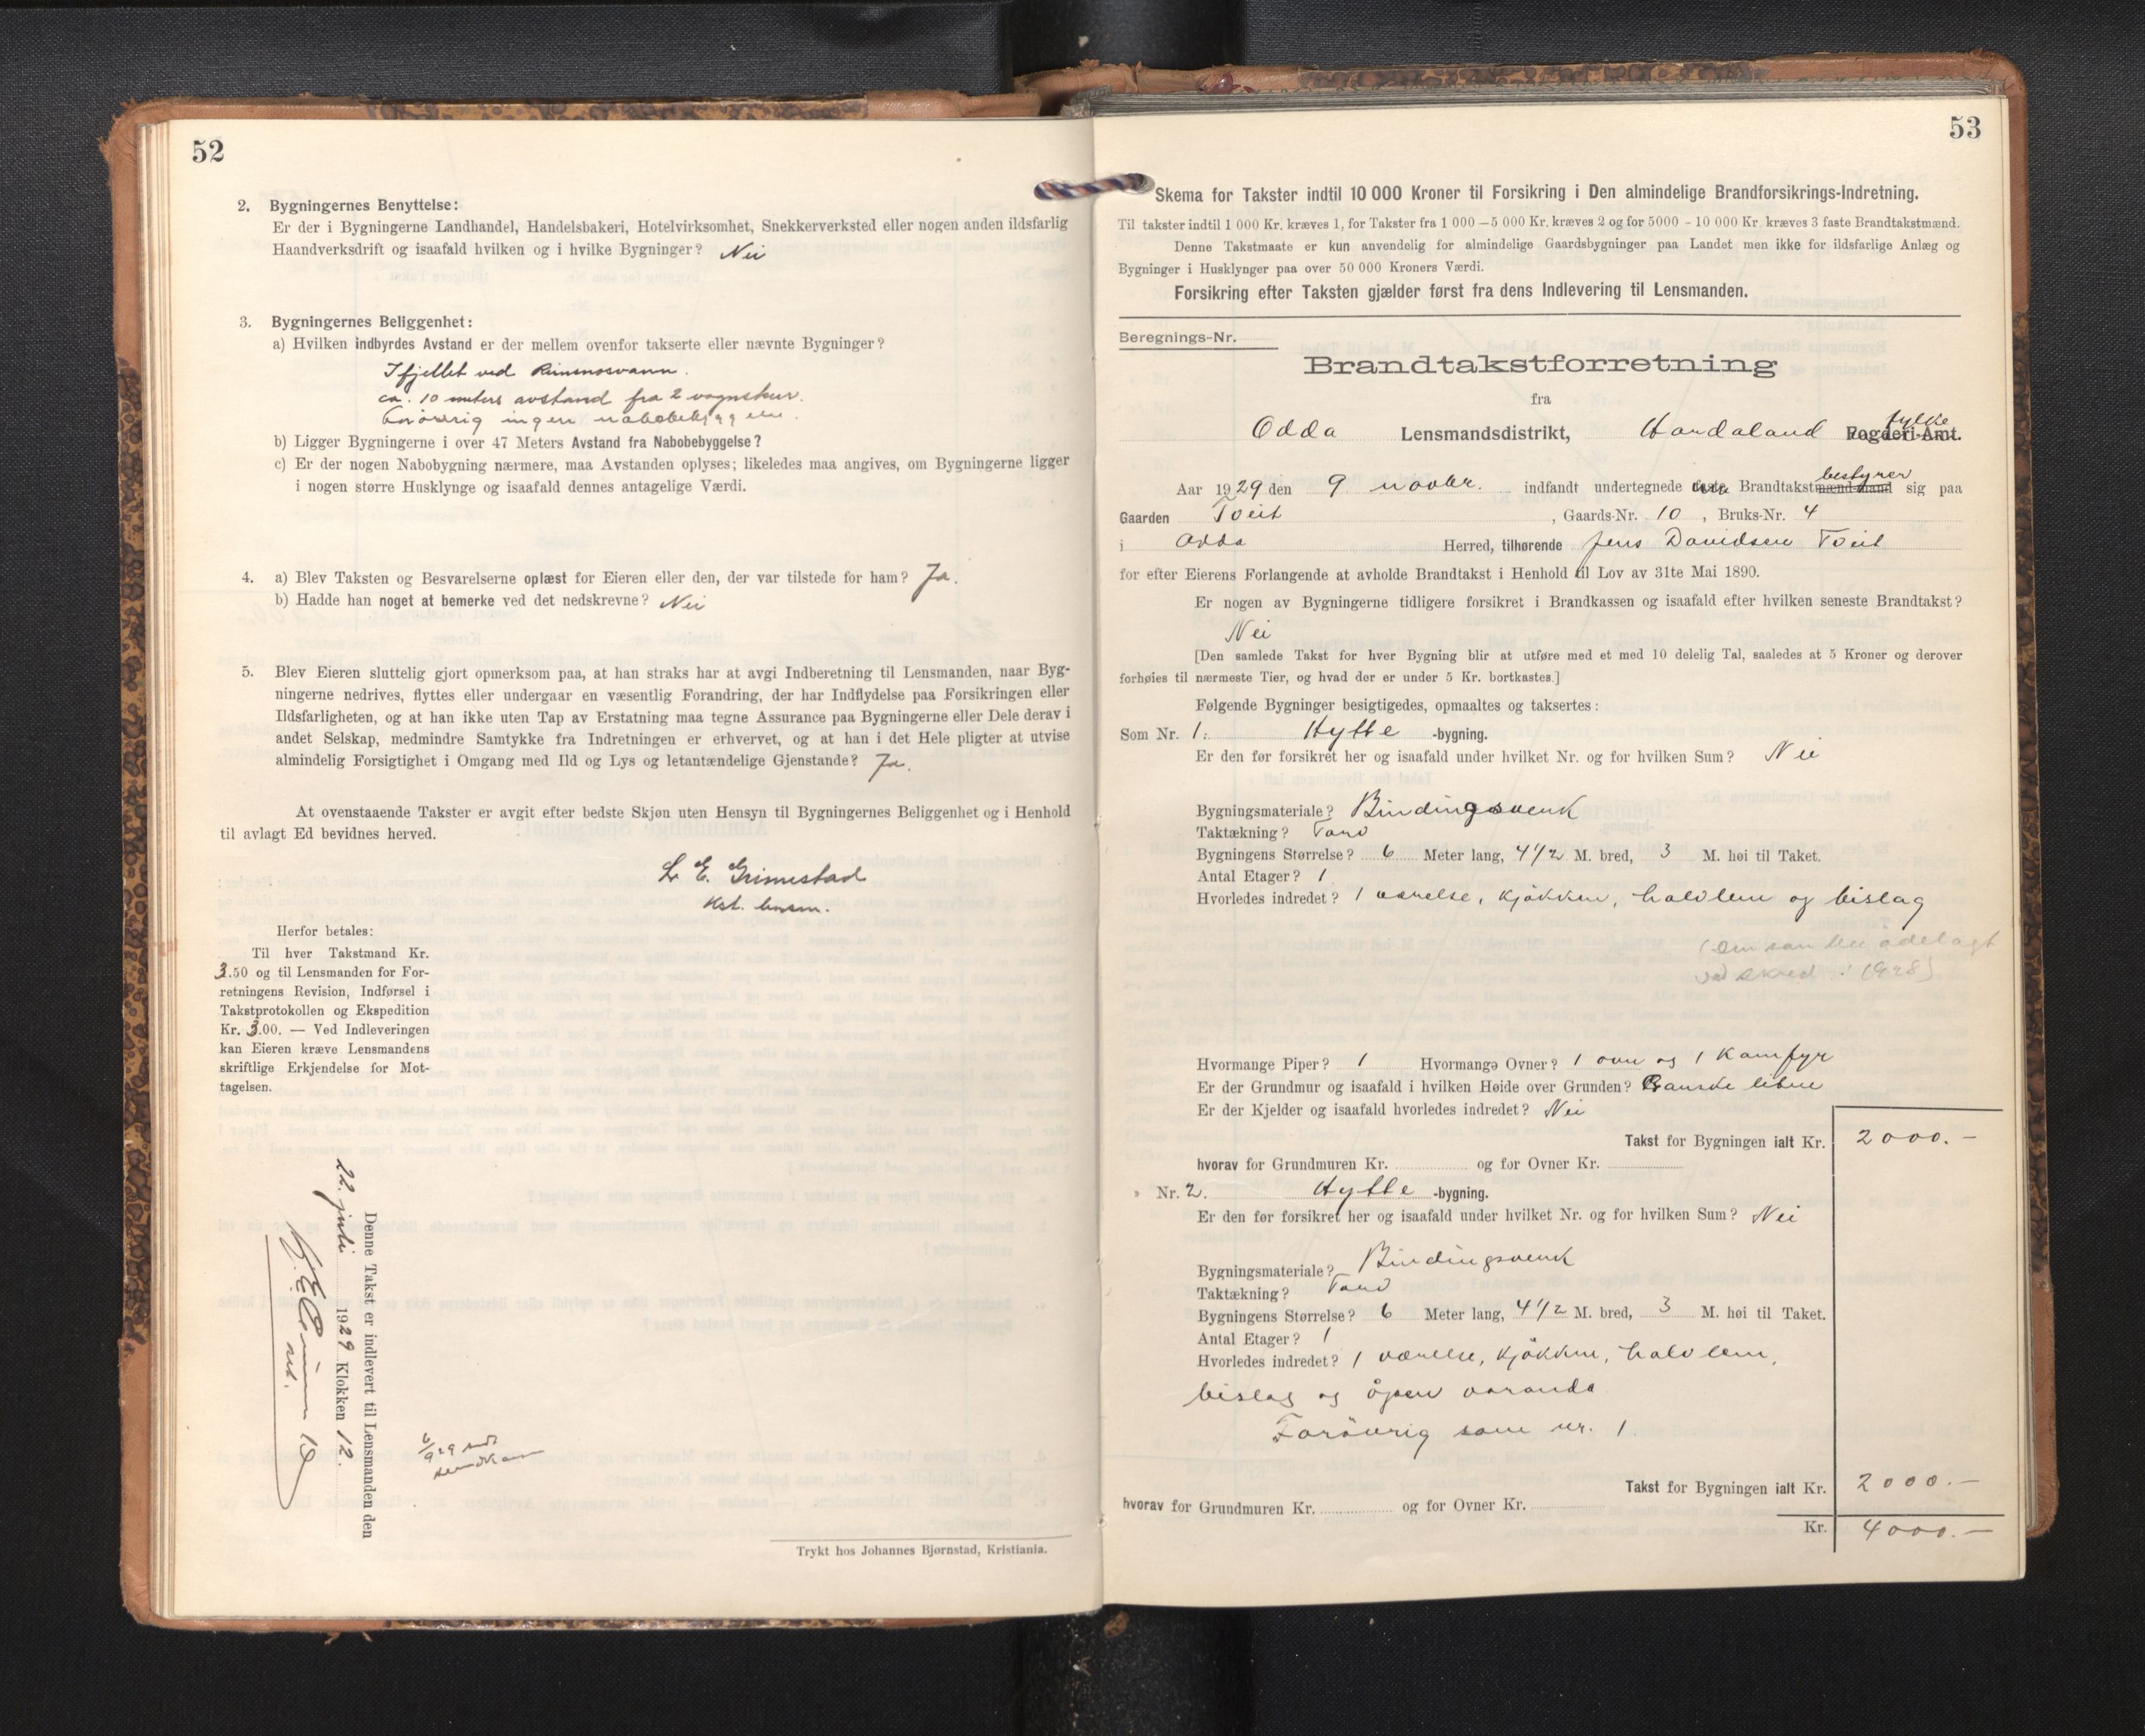 52
2. Bygningernes Benyttelse:
Er der i Bygningerne Landhandel, Handelsbakeri, Hotelvirksomhet, Snekkerverksted eller nogen anden ildsfarlig
Haandverksdrift og isaafald hvilken og i hvilke Bygninger? Nei
3. Bygningernes Beliggenhet:
a) Hvilken indbyrdes Avstand er der mellem ovenfor takserte eller nævnte Bygninger?
I fjellet ved
ca. 10 meters avstand fra 2 vognskur.
Forövrig ingen nabobebyggelse.
b) Ligger Bygningerne i over 47 Meters Avstand fra Nabobebyggelse?
c) Er der nogen Nabobygning nærmere, maa Avstanden oplyses; likeledes maa angives, om Bygningerne ligger
i nogen større Husklynge og isaafald dennes antagelige Værdi.
4. a) Blev Taksten og Besvarelserne oplæst for Eieren eller den, der var tilstede for ham? Ja.
b) Hadde han noget at bemerke ved det nedskrevne? Nei
5. Blev Eieren sluttelig gjort opmerksom paa, at han straks har at avgi Indberetning til Lensmanden, naar Byg-
ningerne nedrives, flyttes eller undergaar en væsentlig Forandring, der har Indflydelse paa Forsikringen eller
Ildsfarligheten, og at han ikke uten Tap av Erstatning maa tegne Assurance paa Bygningerne eller Dele derav i
andet Selskap, medmindre Samtykke fra Indretningen er erhvervet, og at han i det Hele pligter at utvise
almindelig Forsigtighet i Omgang med Ild og Lys og letantændelige Gjenstande? Ja.
At ovenstaaende Takster er avgit efter bedste Skjøn uten Hensyn til Bygningernes Beliggenhet og i Henhold
til avlagt Ed bevidnes herved.
L E. Grimestad
Kst. lensm.
Herfor betales:
Til hver Takstmand Kr.
3.50 og til Lensmanden for For-
retningens Revision, Indførsel i
Takstprotokollen og Ekspedition
Kr. 3.00. — Ved Indleveringen
kan Eieren kræve Lensmandens
skriftlige Erkjendelse for Mot-
tagelsen.
Denne Takst er indlevert til Lensmanden den
22. juli 1929 Klokken 12.
Trykt hos Johannes Bjørnstad, Kristiania.
53
Skema for Takster indtil 10 000 Kroner til Forsikring i Den almindelige Brandforsikrings-Indretning.
Til takster indtil 1 000 Kr. kræves 1, for Takster fra 1 000 — 5 000 Kr. kræves 2 og for 5000 - 10 000 Kr. kræves 3 faste Brandtakstmænd.
Denne Takstmaate er kun anvendelig for almindelige Gaardsbygninger paa Landet men ikke for ildsfarlige Anlæg og
Bygninger i Husklynger paa over 50 000 Kroners Værdi.
Forsikring efter Taksten gjælder først fra dens Indlevering til Lensmanden.
Beregnings-Nr.
Brandtakstforretning
fra
Odda Lensmandsdistrikt, Hordaland fylke Fogderi-Amt.
Aar 1929 den 9 novbr. indfandt undertegnede faste Brandtakstmænd-mand bestyrer sig paa
Gaarden Tveit, Gaards-Nr. 10, Bruks-Nr. 4
i Odda Herred, tilhørende Jens Davidsen Tveit
for efter Eierens Forlangende at avholde Brandtakst i Henhold til Lov av 31te Mai 1890.
Er nogen av Bygningerne tidligere forsikret i Brandkassen og isaafald efter hvilken seneste Brandtakst?
Nei
[Den samlede Takst for hver Bygning blir at utføre med et med 10 delelig Tal, saaledes at 5 Kroner og derover
forhøies til nærmeste Tier, og hvad der er under 5 Kr. bortkastes.]
Følgende Bygninger besigtigedes, opmaaltes og taksertes:
Som Nr. 1. Hytte -bygning.
Er den før forsikret her og isaafald under hvilket Nr. og for hvilken Sum? Nei
Bygningsmateriale? Bindingsverk
Taktækning? Torv
Bygningens Størrelse? 6 Meter lang, 4 1/2 M. bred, 3 M. høi til Taket.
Antal Etager? 1
Hvorledes indredet? 1 værelse, kjökken, halvlem og bislag
(Den som ble ödelagt
ved skred i 1928)
Hvormange Piper? 1 Hvormange Ovner? 1 ovn og 1 Komfyr
Er der Grundmur og isaafald i hvilken Høide over Grunden? Ganske liten
Er der Kjelder og isaafald hvorledes indredet? Nei
Takst for Bygningen ialt Kr. 2000.-
hvorav for Grundmuren Kr. og for Ovner Kr.
" Nr. 2. Hytte -bygning.
Er den før forsikret her og isaafald under hvilket Nr. og for hvilken Sum? Nei
Bygningsmateriale? Bindingsverk
Taktækning? Torv
Bygningens Størrelse? 6 Meter lang, 4 1/2 M. bred, 3 M. høi til Taket.
Antal Etager? 1
Hvorledes indredet? 1 værelse, kjökken, halvlem,
bislag og åpen varanda
Forövrig som nr. 1.
Takst for Bygningen ialt Kr. 2000.-
hvorav for Grundmuren Kr. og for Ovner Kr.
Kr. 4000.-